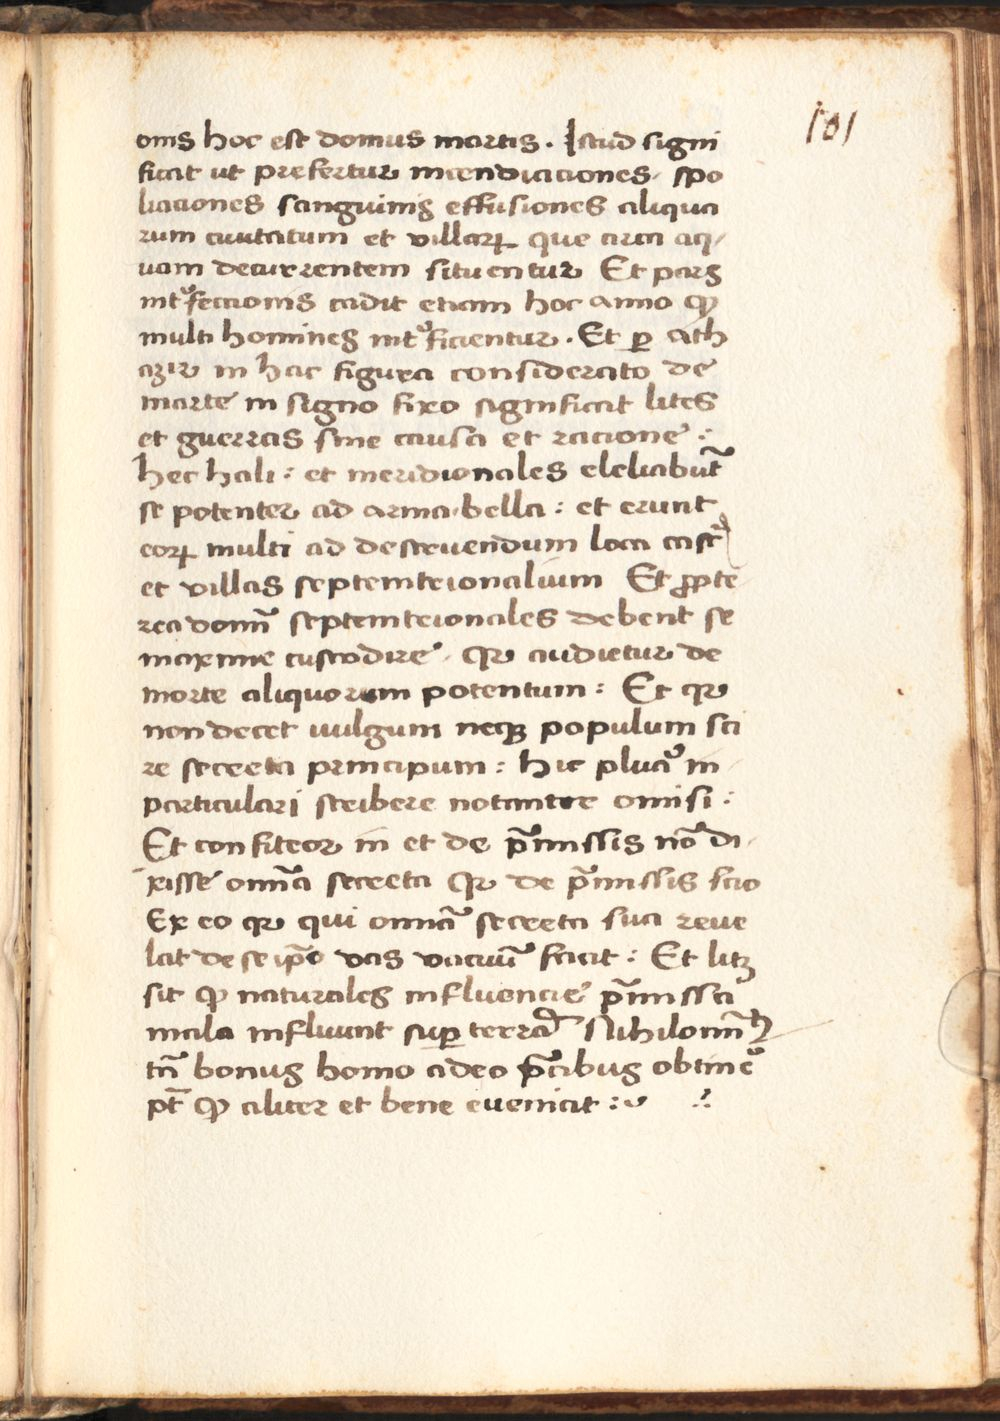 101
onis hoc est domus mortis. Istud signi
ficat ut prefertur incendiaciones, spo
liaciones sanguinis effusiones aliqua
rum ciuitatum et villarꝝ que circa aq̄,
uam decurrentem situentur Et pars
int᷒feccionis cadit etiam hoc anno ꝙ
multi homines int᷒ficientur. Et ꝑ ath
azir in hac figura considerato de
marte in signo fixo significat lites
et guerras sine causa et racione:
hec hali: et meridionales eleuabūt
se potenter ad arma bella: et erunt
eorꝝ multi ad destruendum loca castr̄
et villas septemtrionalium Et ꝓpte
rea domī septemtrionales debent se
maxime custodire. Qr audietur de
morte aliquorum potentum: Et qr
non decet uulgum neqꝫ populum sci
re secreta principum: hic plura in
particulari scribere notanter omisi:
Et confiteor in et de p̄missis nō di
xisse omīa secreta Qr de p̄missis scio
Ex eo qr qui omīa secreta sua reue
lat de se ip̄o vas vacuū facit: Et litꝫ
sit ꝙ naturales influencie p̄missa
mala influunt suꝑ terrā Nihilomīꝰ
tn̄ bonus homo a deo p̄cibus obtine᷒
pt̄ ꝙ aliter et bene eueniat: